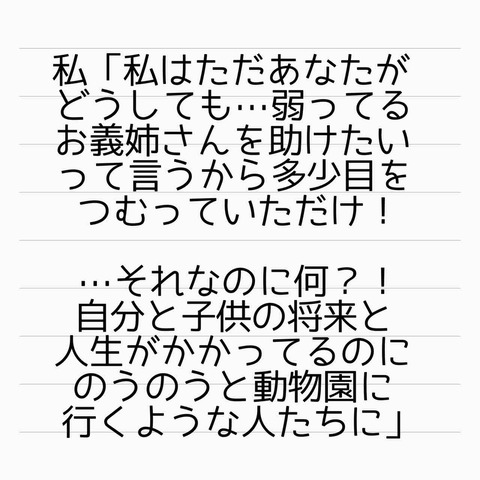 私「私はただあなたが
どうしても…弱ってる
お義姉さんを助けたい
って言うから多少目を
つむっていただけ！
…それなのに何？！
自分と子供の将来と
人生がかかってるのに
のうのうと動物園に
行くような人たちに」